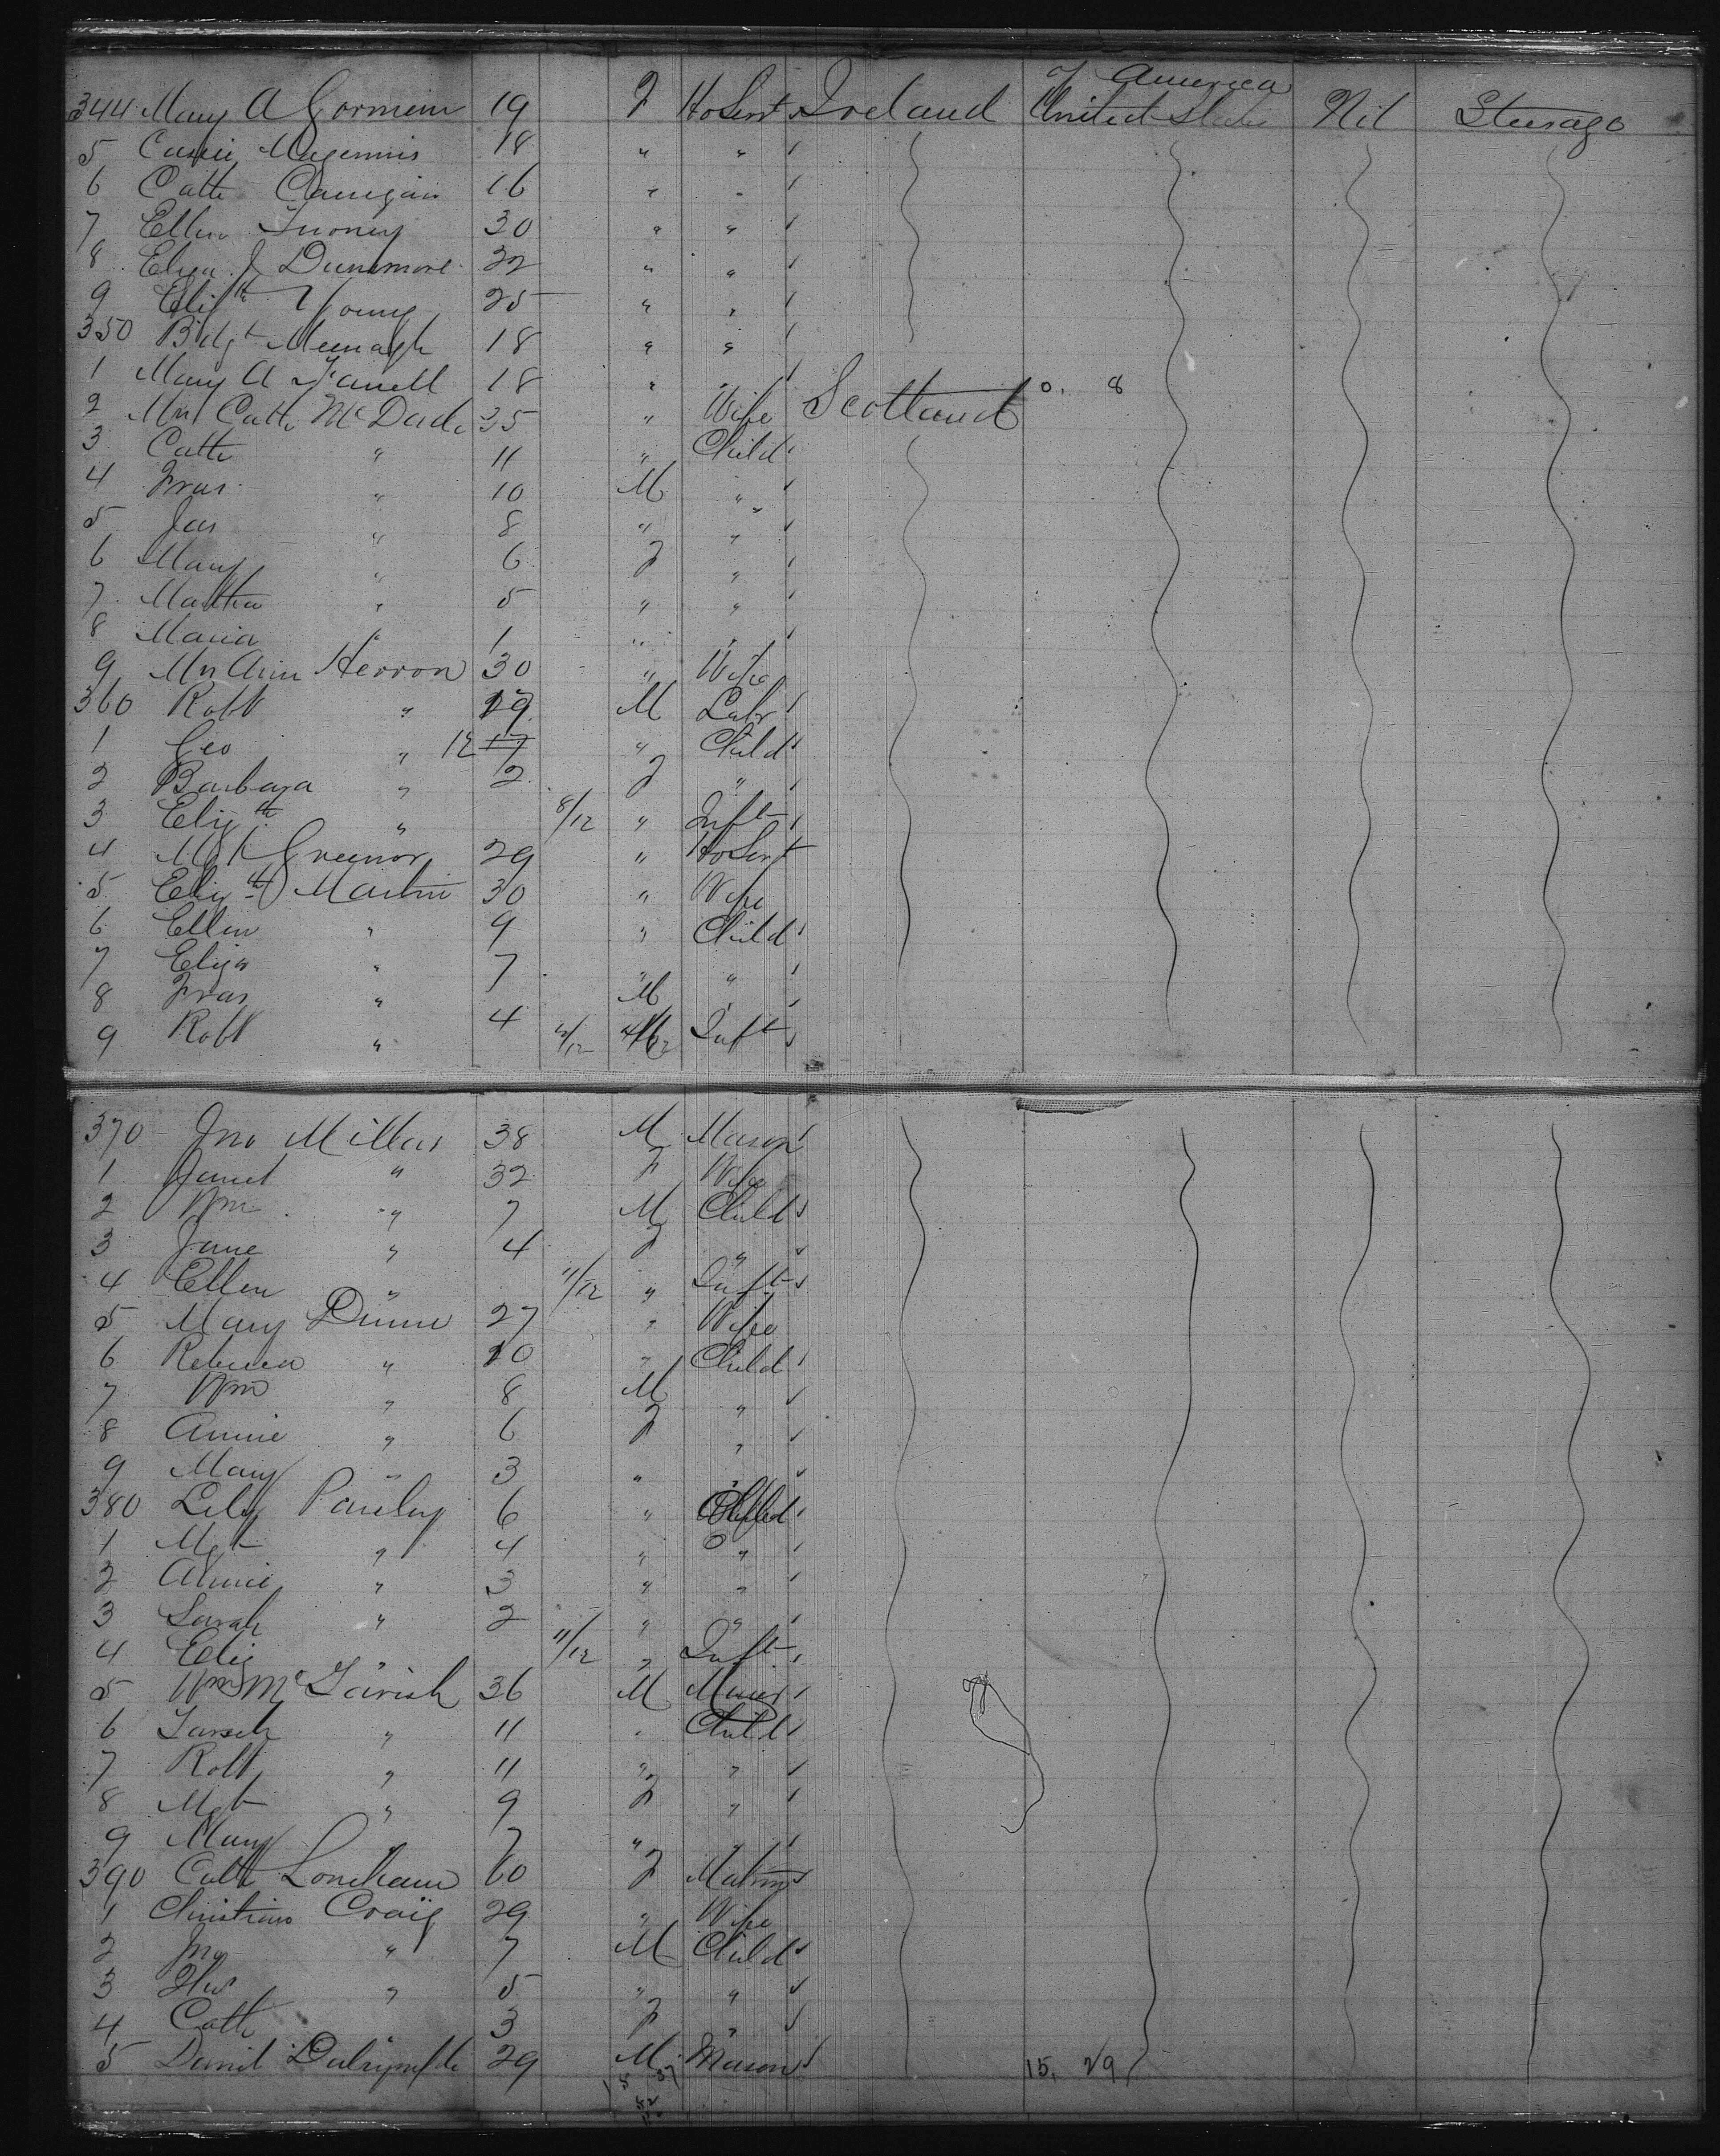 of America
344 Mary A Gormein 19 F HoServt Ireland United States Nil Steerage
5 Cassie Magennis 18 " "
6 Cathe 16 " "
7 Ellen 30 " "
8 Eliza J Dunsmore 32 " "
9 Elizth Young 25 " "
350 Bdgt Meenagh 18 " "
1 Mary A Farrell 18 " " 0. 8
2 Mrs Cath McDade 35 " Wife Scotland
3 Cathe " 11 " Child
4 Fras " 10 M "
5 Jas " 8 " "
6 Mary " 6 F "
7 Martha " 5 " "
8 Maria " 1 " "
9 Mrs Ann Herron 30 " Wife
360 Robt " 19 M Labr
1 Geo " 12 17 " Child
2 Barbara " 2 F "
3 Elizth " 8/12 " Inft
4 Mgt Greenor 29 " HoServt
5 Elizth Martin 30 " Wife
6 Ellen " 9 " Child
7 Eliza " 7 " "
8 Fras " 4 M "
9 Robt " Inft
370 Jno Millar 38 M Mason
1 Janet " 32 F Wife
2 Wm " 7 M Child
3 Jane " 4 F "
4 Ellen " 11/12 " Inft
5 Mary Dunn 27 " Wife
6 Rebecca " 10 " Child
7 Wm " 8 M "
8 Annie " 6 F "
9 Mary " 3 " "
380 Lily 6 " Child
1 Mgt " 4 " "
2 Annie " 3 " "
3 Sarah " 2 " "
4 Eliz " 11/12 " Inft
5 Wm McTavish 36 M Miner
6 " 11 " Child
7 Robt " 11 " "
8 Mgt " 9 F "
9 Mary 7 "
390 Cath 60 F Matron
1 Christina Craig 29 " Wife
2 Jno " 7 M Child
3 " 5 " "
4 Cath 3 F "
5 David Dalrymple 29 M Mason 15. 29